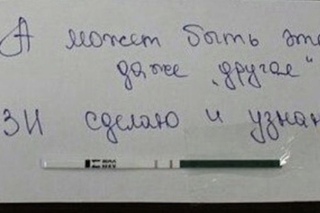 А может быть это
даже "другае"
ЗИ сделаю и узнаю
MAX